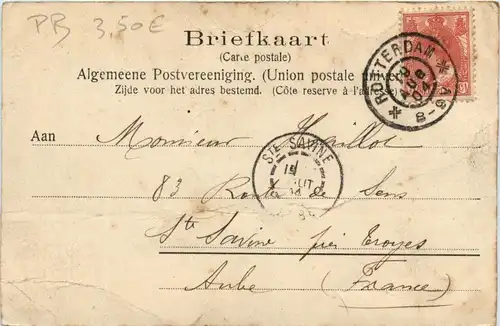 PB 3,50€
Briefkaart
(Carte postale)
Algemeene Postvereeniging. (Union postale univers
Zijde voor het adres bestemd. (Côte reserve à l'adres
ROTTERDAM
Aan Monsieur Maillot
STE SAVINE
83 Route de Sens
Ste Savine près Troyes
Aube (France)